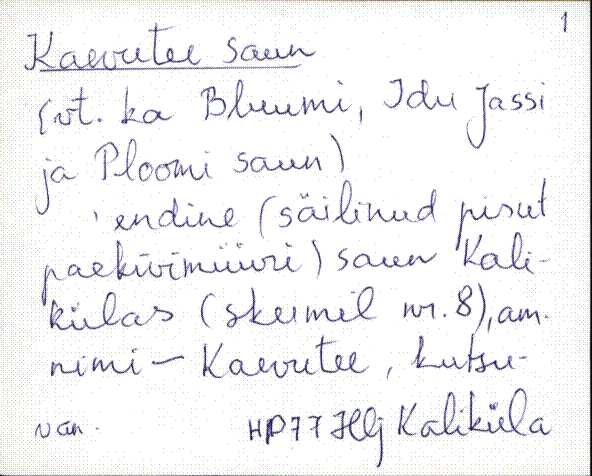 1
Kaevutee saun
(vt. ka Bluumi, Idu Jassi
ja Ploomi saun)
endine (säilinud pisut
paekivimüüri) saun Kali-
külas (skeemil nr. 8), am.
nimi - Kaevutee, kutsu-
van. HP77 Hlj Kaliküla